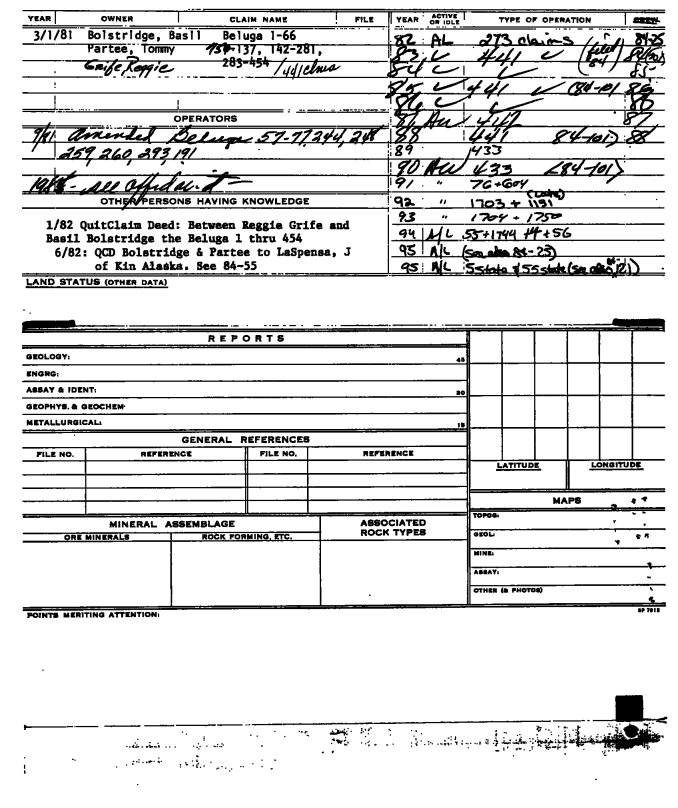 YEAR OWNER CLAIM NAME FILE
3/1/81 Bolstridge, Basil Beluga 1-66
Partee, Tommy 137, 142-281,
Grife Reggie 283-454 / 441 clms
OPERATORS
9/81 Amended Beluga 57-77, 244, 248
259, 260, 293, 191
see affidavit
OTHER PERSONS HAVING KNOWLEDGE
1/82 QuitClaim Deed: Between Reggie Grife and
Basil Bolstridge the Beluga 1 thru 454
6/82: QCD Bolstridge & Partee to LaSpensa, J
of Kin Alaska. See 84-55
LAND STATUS (OTHER DATA)
YEAR ACTIVE OR IDLE TYPE OF OPERATION
82 AL 273 claims 84-25
83 ✓ 441 ✓ (filed 84)
84 ✓ ✓ 85
85 ✓ 441 ✓ (84-101 86
86 ✓ ✓ 86
AW 87
88 441 84-101) 88
89 433
90 AW 433 (84-101)
91 " 76+604
92 " 1703 + 1151
93 " 1704 + 1750
94 A/L 55+1744 + 56
95 A/L (see also 84-25)
95 A/L 55 state
REPORTS
GEOLOGY: 45
ENGRG:
ASSAY & IDENT: 30
GEOPHYS. & GEOCHEM
METALLURGICAL: 15
GENERAL REFERENCES
FILE NO. REFERENCE FILE NO. REFERENCE
LATITUDE LONGITUDE
MAPS
TOPOG:
GEOL:
MINE:
ASSAY:
OTHER (& PHOTOS)
MINERAL ASSEMBLAGE
ORE MINERALS ROCK FORMING, ETC.
ASSOCIATED
ROCK TYPES
POINTS MERITING ATTENTION: